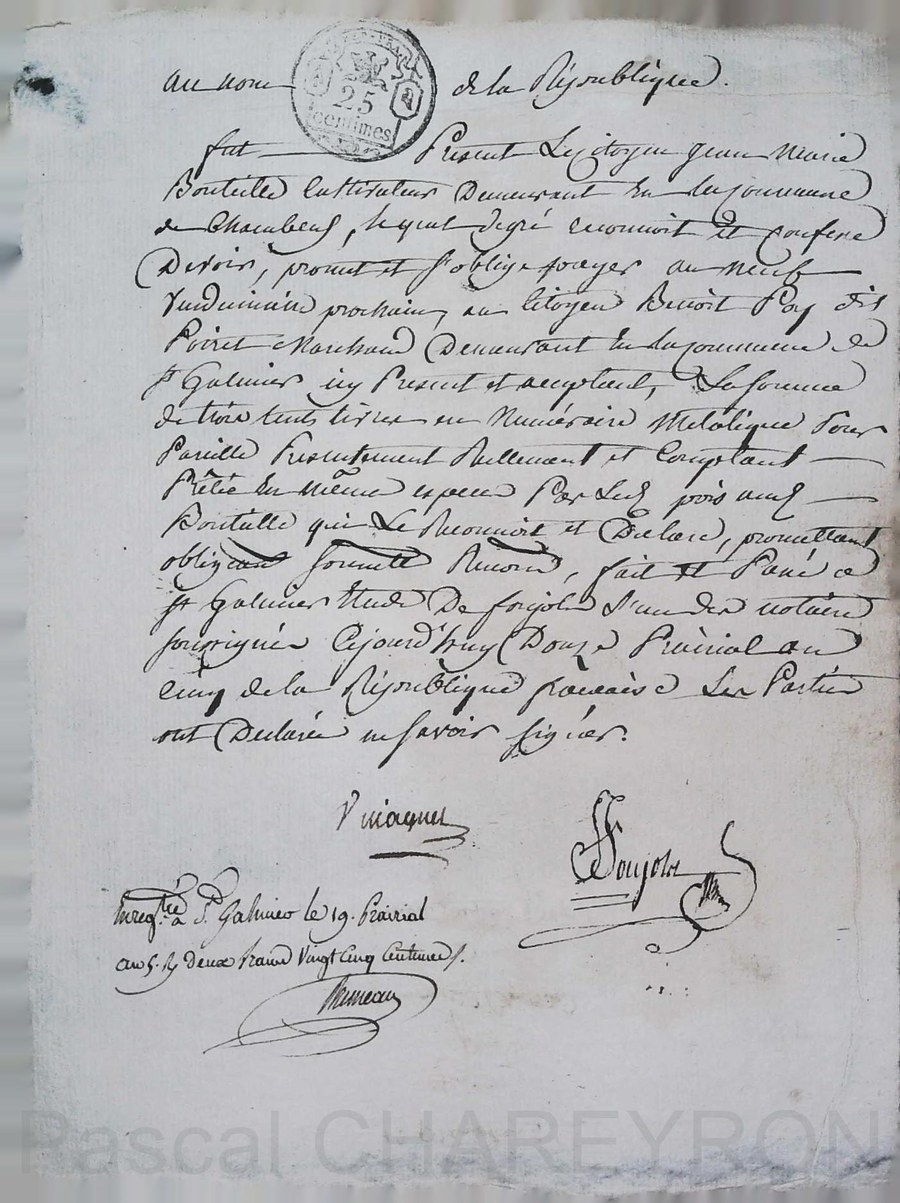 au nom de la République.
25
centimes
fut Présent Le citoyen Jean Marie
Bouteille Cultivateur Demeurant En la Commune
de Chambeuf, lequel de gré reconnoit Et confesse
Devoir, promet et s'oblige payer au Neuf
Vendémiaire prochain, au Citoyen Benoit Pay dit
Poiret Marchand Demeurant En la Commune de
St Galmier icy Présent et acceptant, La Somme
de trois cents livres en Numéraire Métalique Pour
Pareille Présentement Réellement et Comptant
Prêtée En même espece Par Led. aud.
Bouteille qui Le Reconnoit et Déclare, promettant
obligeant Soumett Renonce, fait et Passé a
St Galmier Etude De Soujolx L'un des notaires
soussignés Cejourd'huy Douze Prairial an
cinq de la République francaise Les Parties
ont Declarée ne Savoir Signer.
Soujolx
Enregtré a St Galmier le 19. Prairial
an 5. R Deux francs Vingt Cinq Centimes
Pascal CHAREYRON